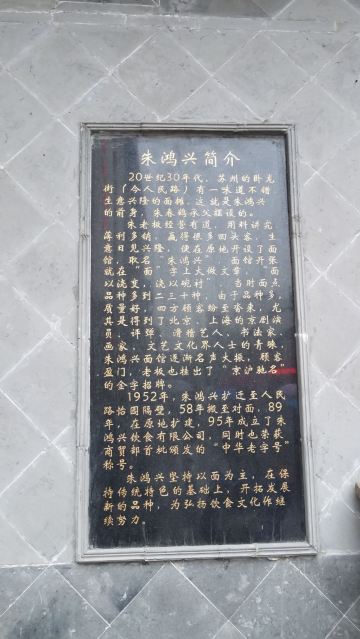 朱鸿兴简介
20世纪30年代，苏州的卧龙
街（今人民路）有一味道不错，
生意兴隆的面摊，这就是朱鸿兴
的前身，朱春鹤承父摆设的。
朱老板经营有道，用料讲究，
薄利多销，赢得很多回头客，生
意日见兴隆，便在原地开设了面
馆，取名“朱鸿兴”，面馆开张
就在“面”字上大做文章，“面
以浇变，浇以碗衬”，当时面点
品种多到二三十种，由于品种多，
质量好，四方顾客纷至沓来，尤
其是得到了北京、上海的京剧演
员，评弹、滑稽艺人、书法家、
画家，文艺文化界人士的青睐，
朱鸿兴面馆逐渐名声大振，顾客
盈门，老板也挂出了“京沪驰名”
的金字招牌。
1952年，朱鸿兴扩迁至人民
路怡园隔壁，58年搬至对面，89
年，在原地扩建，95年成立了朱
鸿兴饮食有限公司，同时也荣获
商贸部首批颁发的“中华老字号”
称号。
朱鸿兴坚持以面为主，在保
持传统特色的基础上，开拓发展
新的品种，为弘扬饮食文化作继
续努力